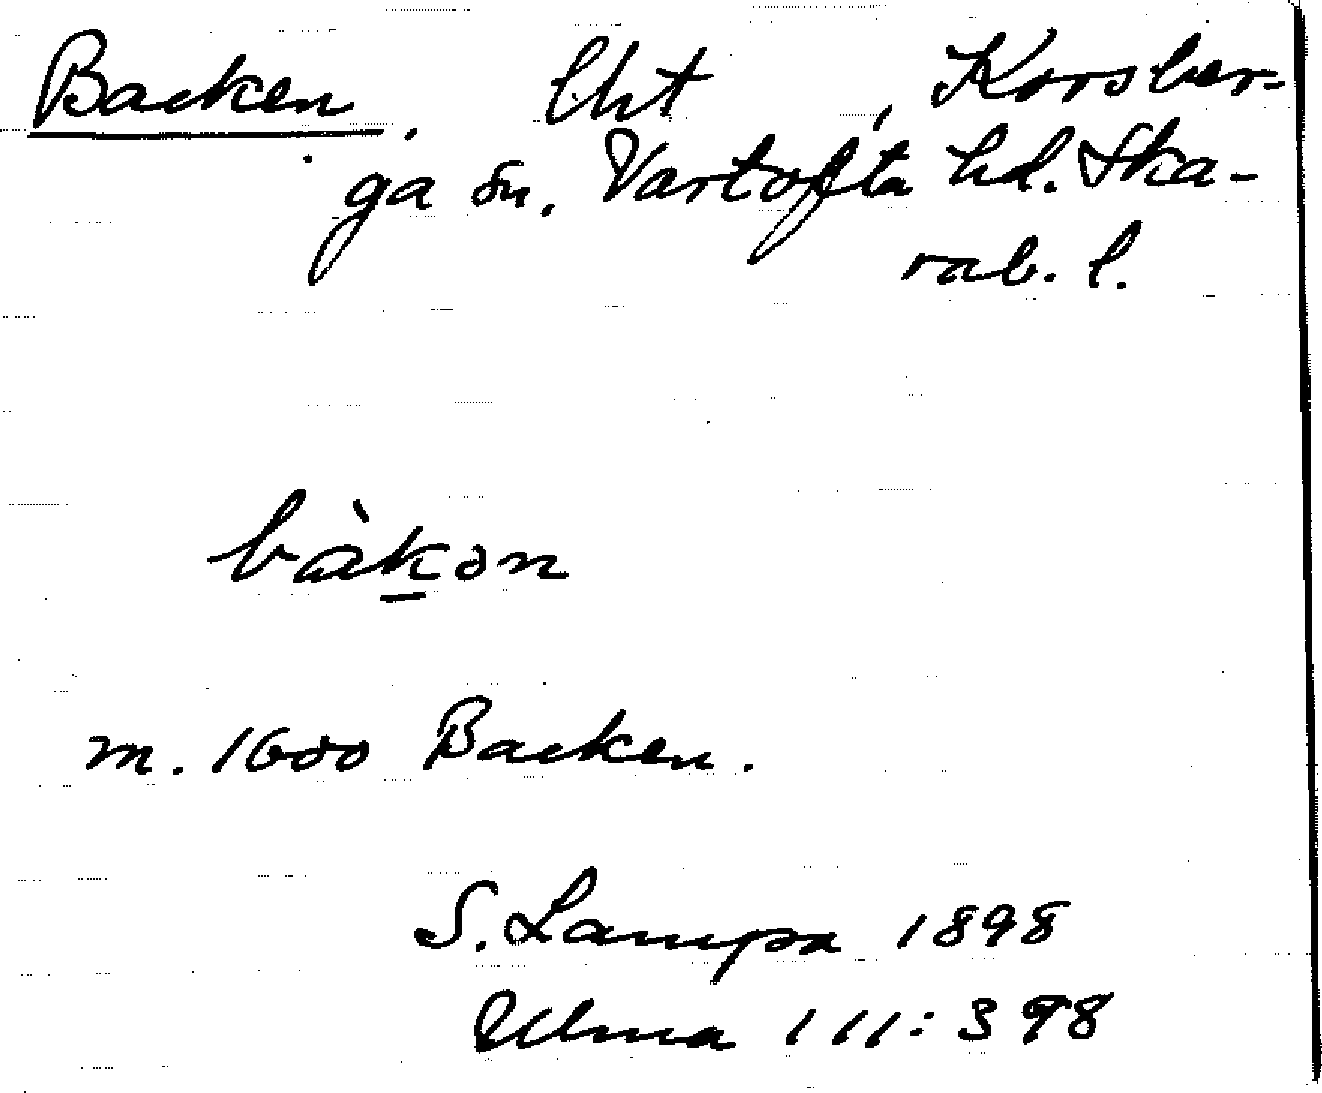 Backen. lht, Korsber-
ga sn. Vartofta hd. Ska-
rab. l.
bàkən
m. 1600 Backen.
S. Lampa 1898
Ulma 111:398